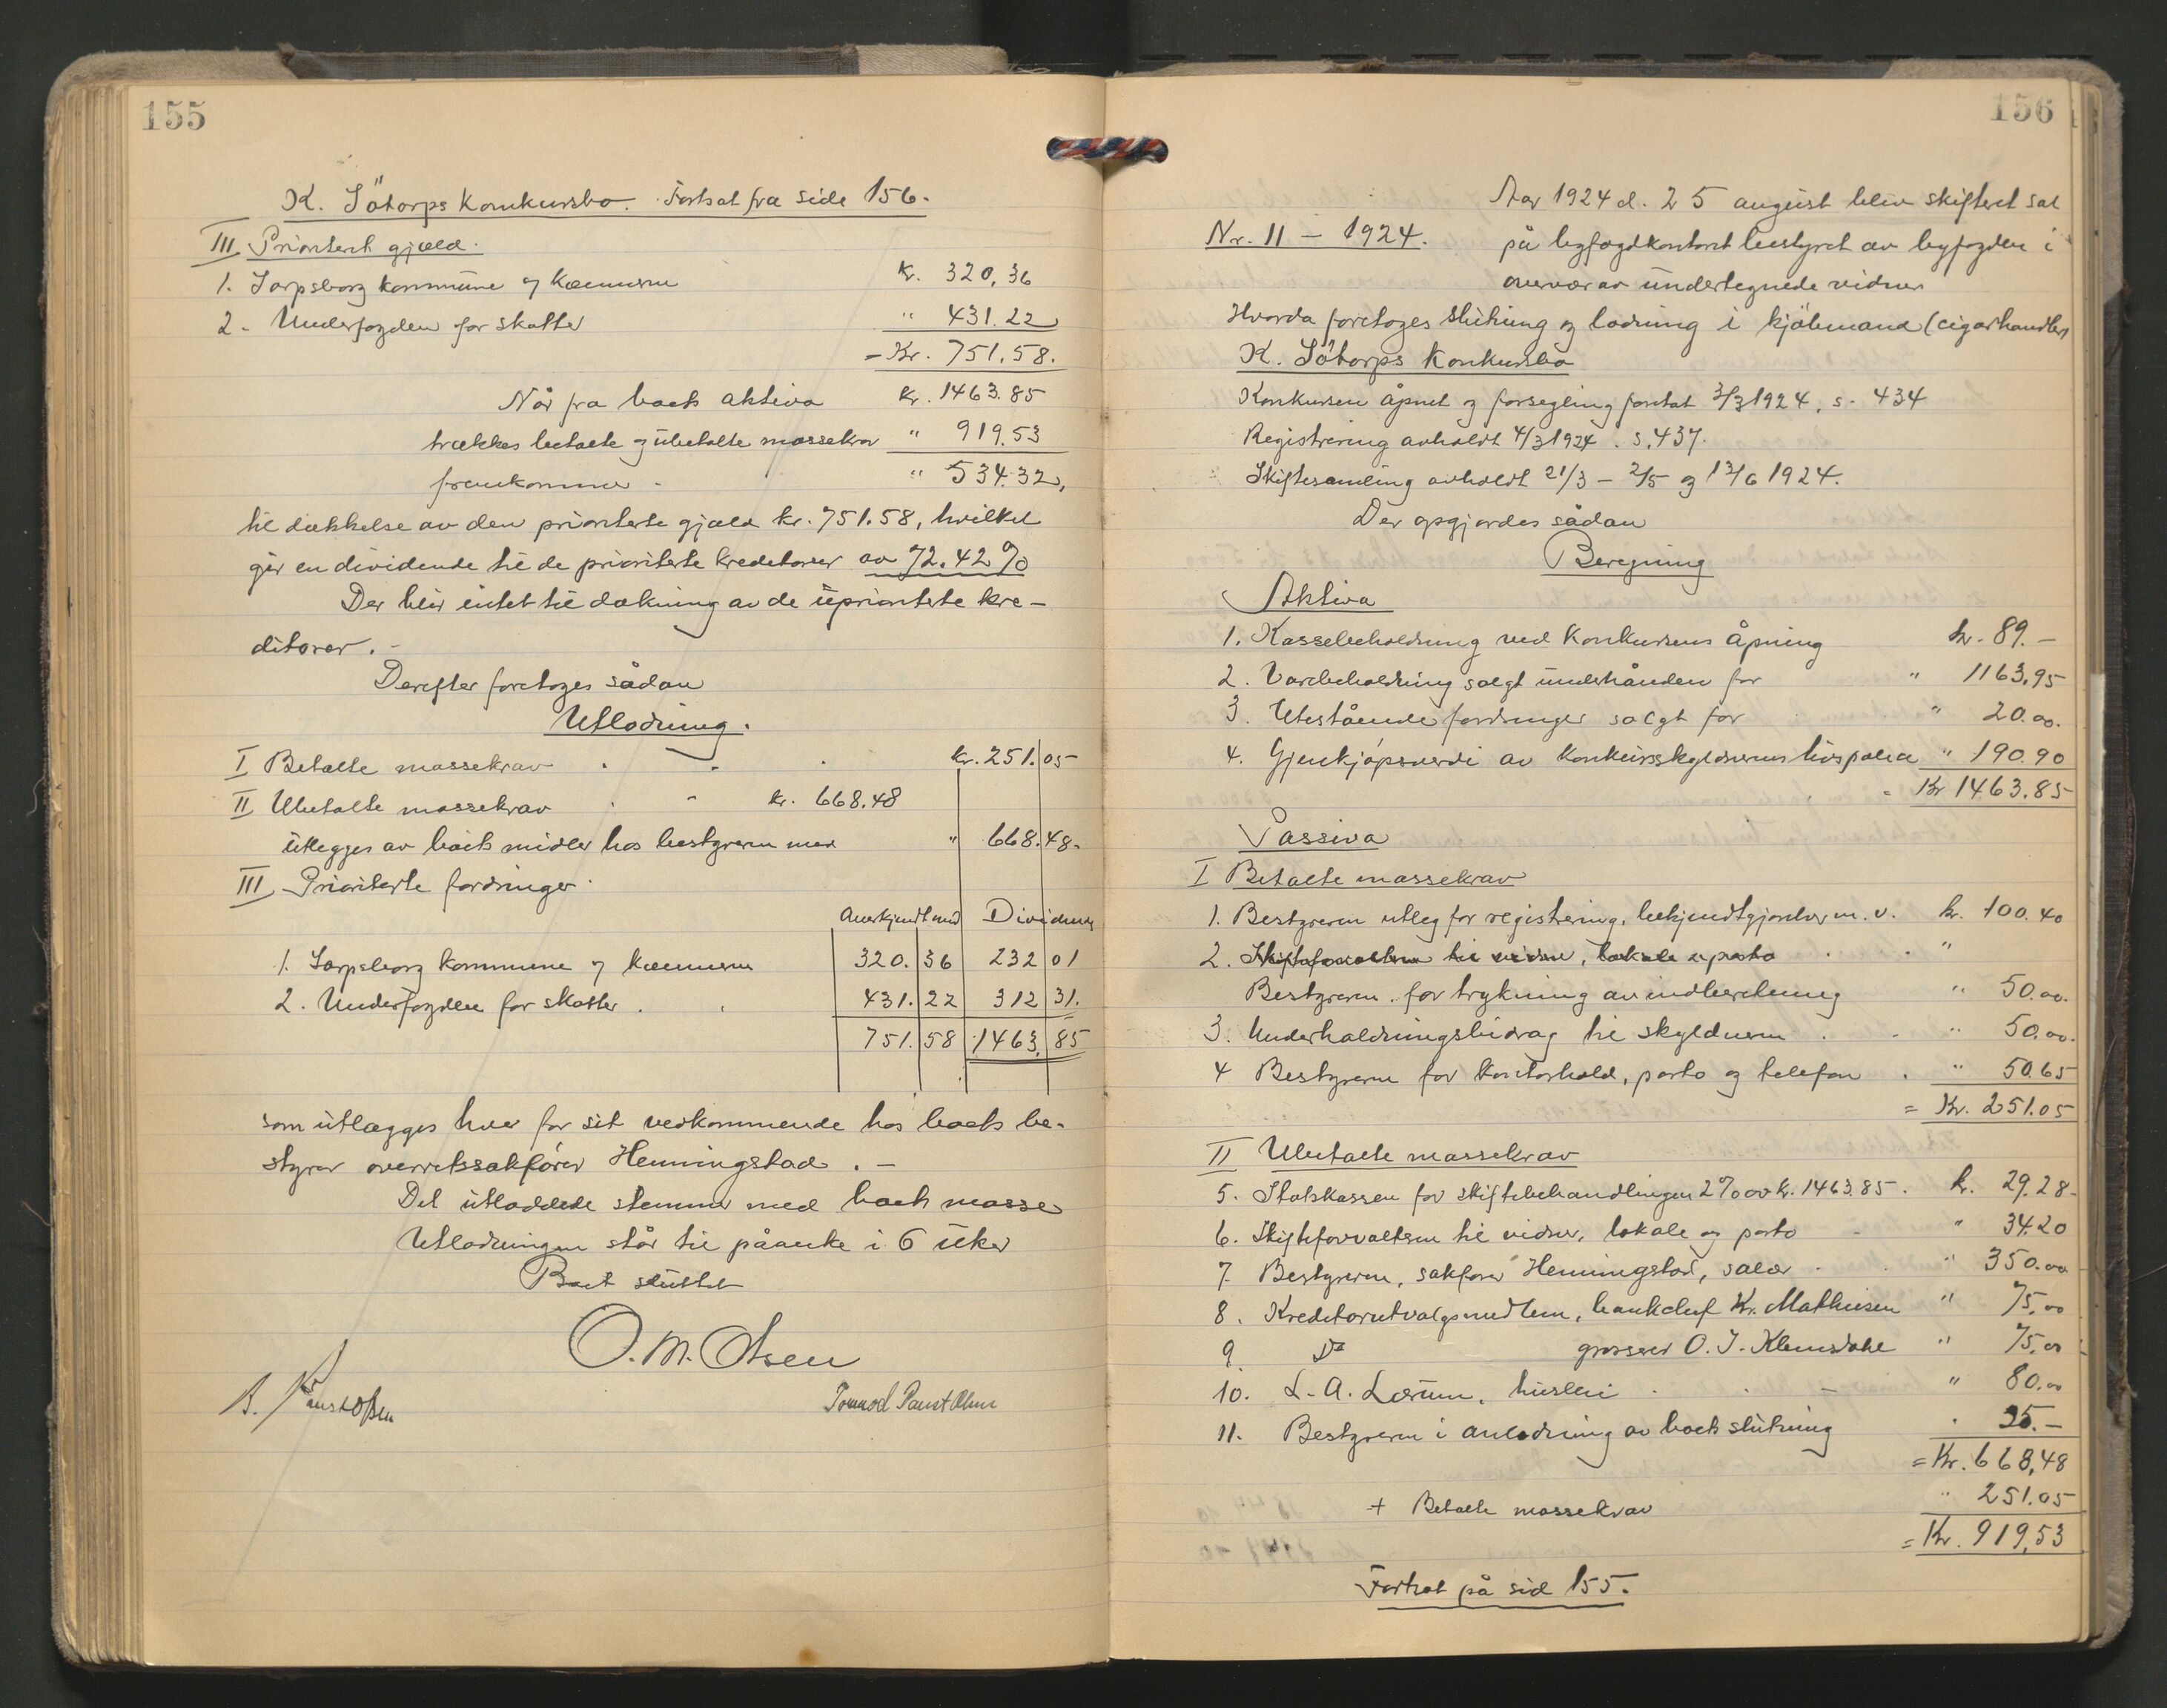 155
K. Sötorps Konkursbo. Fortsat fra side 156.
III Prioritert gjæld.
1. Sarpsborg kommune v/ Kæmneren kr. 320,36
2. Underfogden for skatter " 431.22
= Kr. 751.58.
Når fra boets aktiva kr. 1463.85
trækkes betalte og ubetalte massekrav " 919.53
fremkommer " 534.32,
til dækkelse av den prioriterte gjæld kr. 751.58, hvilket
gir en dividende til de prioriterte kreditorer av 72.42 %
Der blir intet til dækning av de uprioriterte kre-
ditorer.-
Derefter foretages sådan
Utlodning.
I Betalte massekrav . . . kr. 251.05
II Ubetalte massekrav . - kr. 668.48
utlegges av boets midler hos bestyreren med " 668.48.
III Prioriterte fordringer.
Anerkjendt med Dividende
1. Sarpsborg kommune v/ kæmneren 320.36 232 01
2. Underfogden for skatter . . 431.22 312 31.
751.58 1463.85
som utlægges hver for sit vedkommende hos boets be-
styrer overretssakfører Henningstad . -
Det utloddede stemmer med boets masse
Utlodningen står til påanke i 6 uker
Boet sluttet
O. M. Olsen
156
Aar 1924 d. 25 august blev skifteret sat
Nr. 11 - 1924. på byfogdkontoret bestyret av byfogden i
overvær av undertegnede vidner
Hvorda foretoges slutning og lodning i kjøbmand (cigarhandler)
K. Sötorps Konkursbo
Konkursen åpnet og forsegling foretat 3/3 1924, s. 434
Registrering avholdt 4/3 1924 . s. 437.
Skiftesamling avholdt 21/3 - 2/5 og 13/6 1924.
Der opgjordes sådan
Beregning
Aktiva
1. Kassebeholdning ved konkursens åpning kr. 89.-
2. Varebeholdning solgt underhånden for " 1163.95
3. Utestående fordringer solgt for " 20.00.
4. Gjenkjøpsverdi av konkursskyldnerens livspolice " 190.90
= Kr 1463.85
Passiva
I Betalte massekrav
1. Bestyreren utleg for registrering, bekjendtgjørelser m.v. kr. 100.40
2. Skifteforvalteren til vidner, lokale og porto . . "
Bestyreren for trykning av indberetning " 50.00.
3. Underholdningsbidrag til skyldneren . - " 50.00.
4 Bestyreren for kontorhold, porto og telefon . " 50.65
= Kr. 251.05
II Ubetalte massekrav
5. Statskassen for skiftebehandlingen 2% av kr. 1463.85. kr. 29.28-
6. Skifteforvalteren til vidner, lokale og porto - " 34.20
7. Bestyreren, sakfører Henningstad, salær . . " 350.00
8. Kreditorutvalgsmedlem, bankchef Kr. Mathiesen " 75.00
9. Do grosserer O. J. Klemsdahl " 75.00
10. L. A. Lærum, husleie . . - " 80.00
11. Bestyreren i anledning av boets slutning . 25.-
= Kr. 668,48
+ Betalte massekrav " 251.05
= Kr. 919,53
Fortsat på side 155.